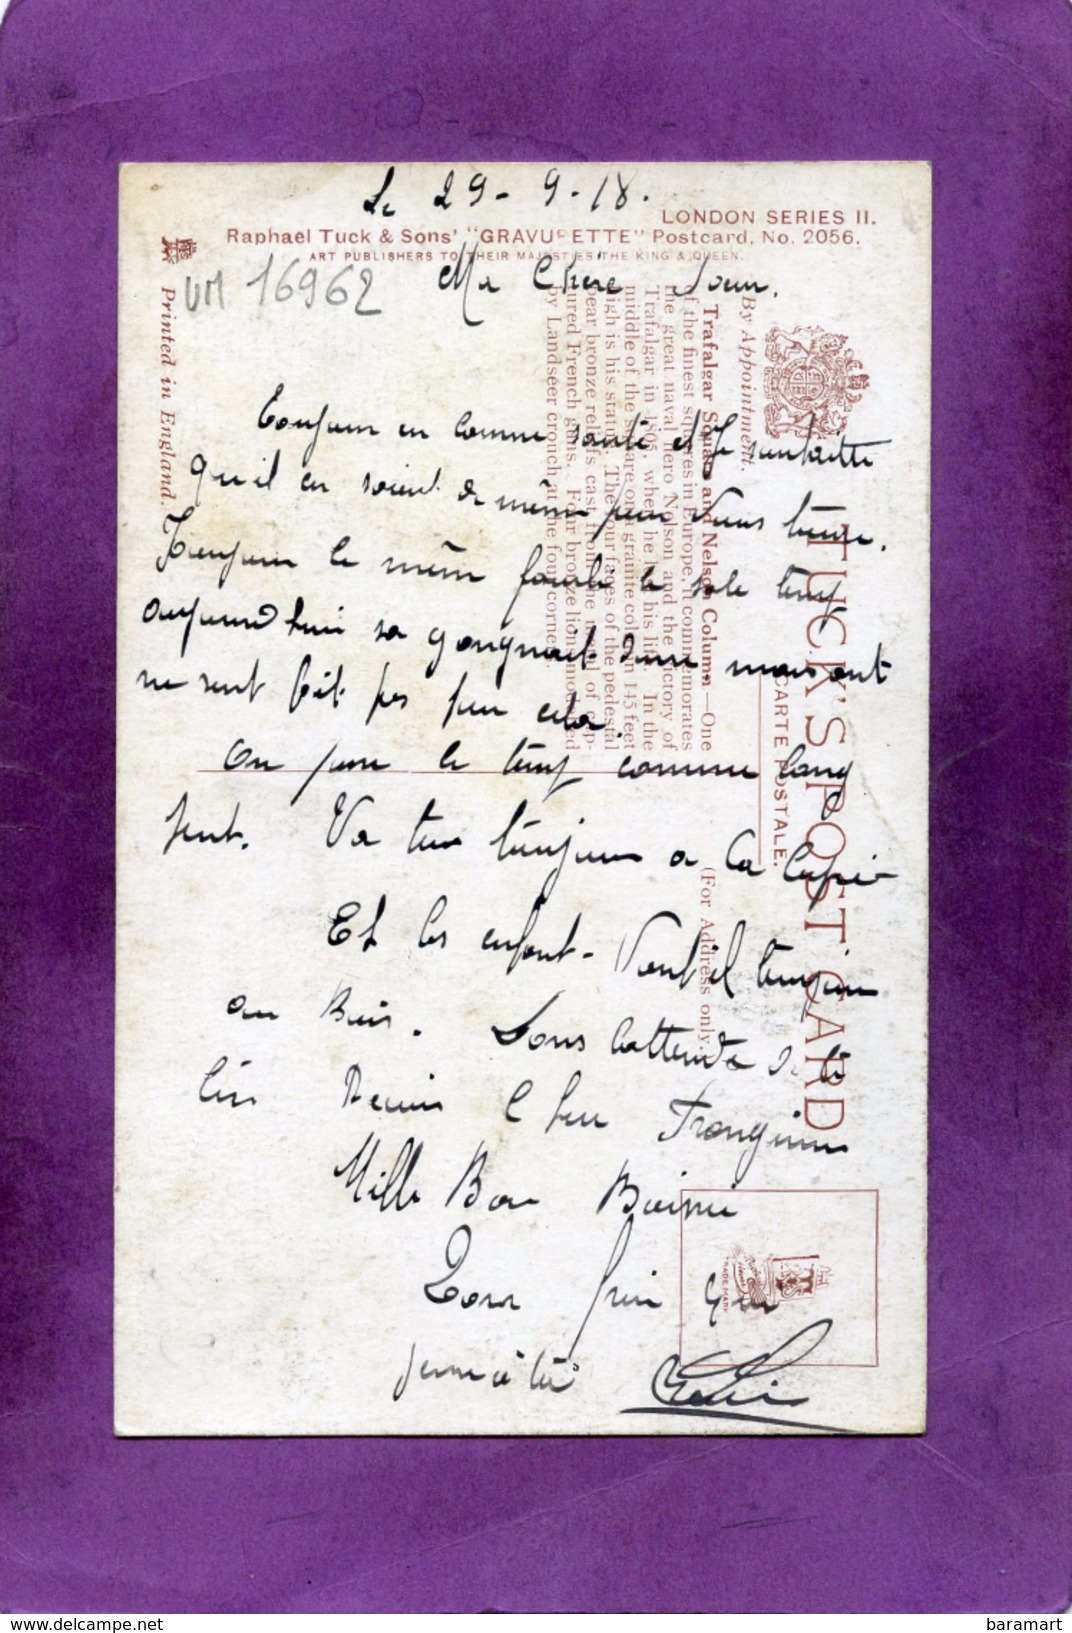 Le 29-9-18.
LONDON SERIES II.
Raphael Tuck & Sons' "GRAVURETTE" Postcard, No. 2056.
ART PUBLISHERS TO THEIR MAJESTIES THE KING & QUEEN.
UM 16962
Ma Chère Soeur.
Toujour en comme santé et Je souhaitte
qu'il en soient de même pour Vous tous.
Toujour le même fourbi le sale temp
aujourd'hui sa
ne sent fait pas pour cela.
On passe le temp comme lont
peut. Va tu toujour a La
Et les enfant. Vont il toujour
au Bois. Dans lattende de te
lire Reçois
Mille Bon Baiser
Ton frère qui
pense à toi
Printed in England.
By Appointment.
Trafalgar Square and Nelson Column.—One
of the finest squares in Europe, it commemorates
the great naval hero Nelson and the victory of
Trafalgar in 1805, where he lost his life. In the
middle of the square on a granite column 145 feet
high is his statue. The four faces of the pedestal
bear bronze reliefs cast from the metal of cap-
tured French guns. Four bronze lions modelled
by Landseer crouch at the four corners.
TUCK'S POST CARD
CARTE POSTALE.
(For Address only.)
TRADE MARK
delcampe.net
baramart